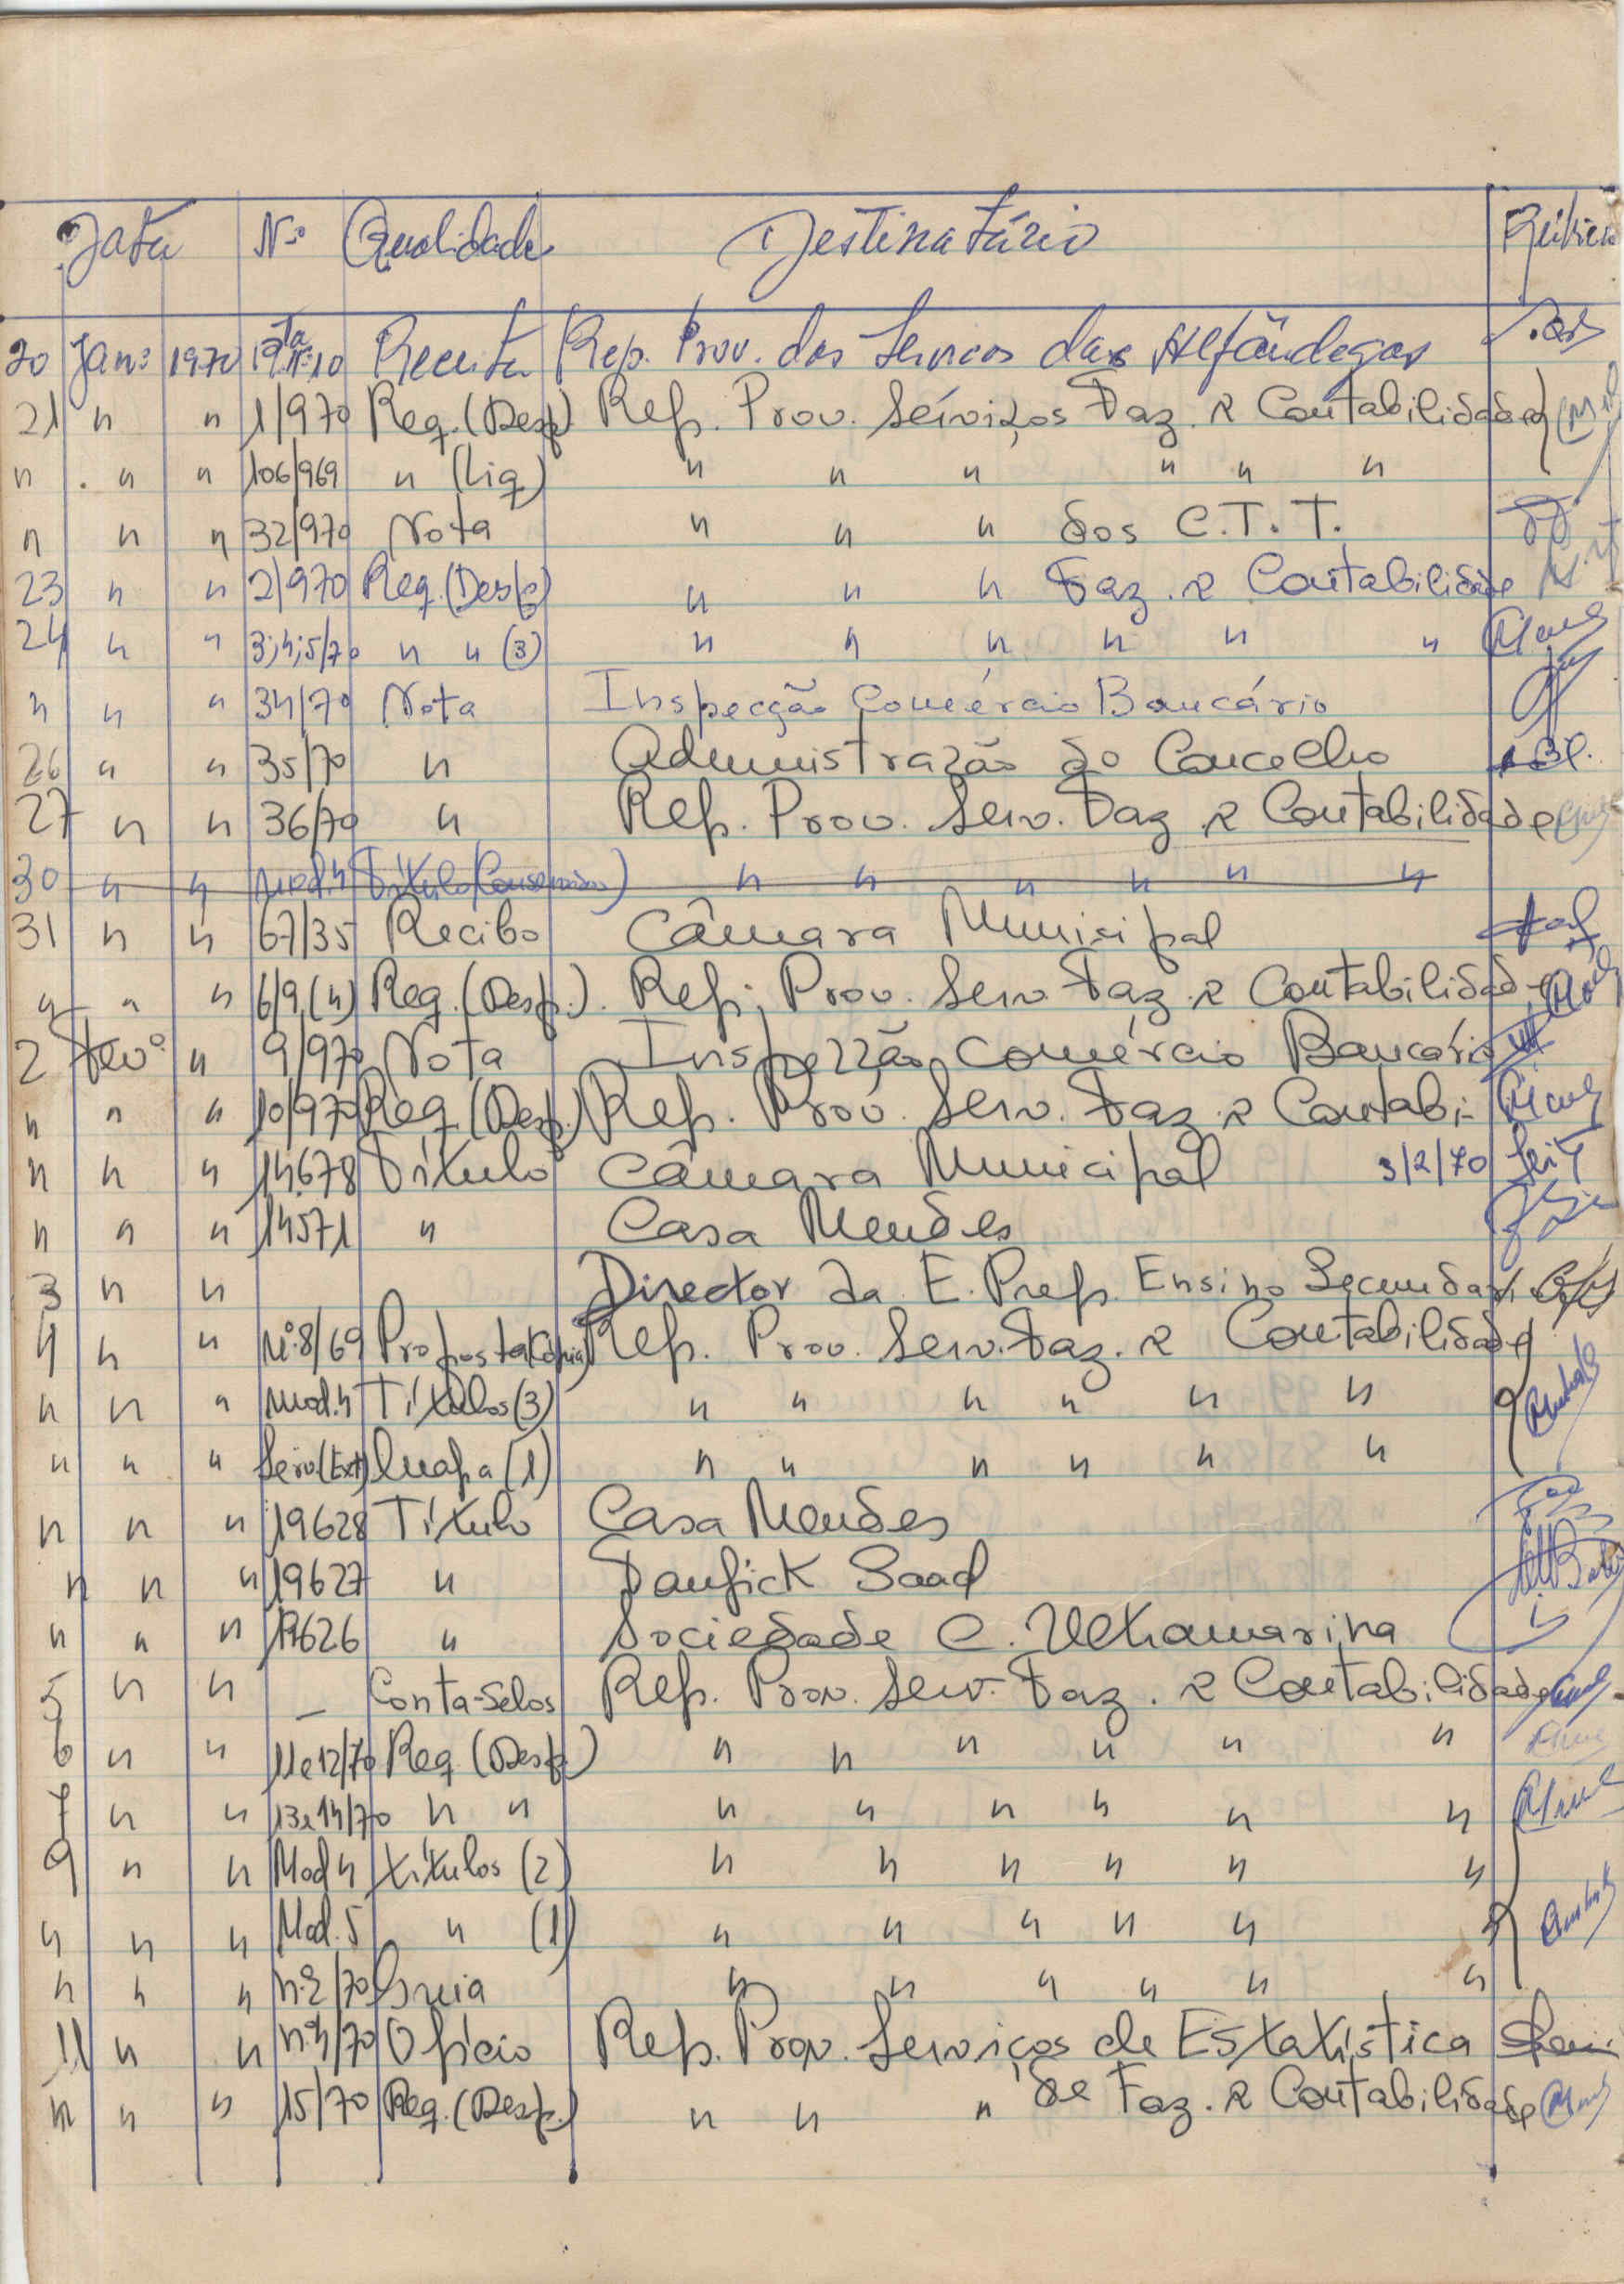 Data Nº Qualidade Destinatário Rúbrica
20 Janº 1970 Receita Rep. Prov. dos Servicos das Alfândegas
21 " " 1/970 Req. (Desp) Rep. Prov. Serviços Faz. e Contabilidade
" " " 106/969 " (Liq) " " " " " "
" " " 32/970 Nota " " " dos C.T.T.
23 " " 2/970 Req. (Desp) " " " Faz. e Contabilidade
24 " " 3;4;5/70 " " (3) " " " " " "
" " " 34/70 Nota Inspecção Comércio Bancário
26 " " 35/70 " Administração do Concelho
27 " " 36/70 " Rep. Prov. Serv. Faz e Contabilidade
30 " " Mod.4 Título " " " " " "
31 " " 67/35 Recibo Câmara Municipal
" " " 6/9 (4) Req. (Desp.). Rep. Prov. Serv. Faz. e Contabilidade
2 Fevº " 9/970 Nota Inspeção Comércio Bancário
" " " 10/970 Req. (Desp.) Rep. Prov. Serv. Faz. e Contabi-
" " " 14678 Título Câmara Municipal 3/2/70
" " " 14571 " Casa Mendes
3 " " Director da E. Prep. Ensino Secundar.
4 " " Nº 8/69 Proposta (Cópia) Rep. Prov. Serv. Faz. e Contabilidade
" " " Mod.4 Títulos (3) " " " " " "
" " " Serv(Ext) Mapa (1) " " " " " "
" " " 19628 Título Casa Mendes
" " " 19627 " Taufick Saad
" " " 19626 " Sociedade C. Ultramarina
5 " " — Conta-Selos Rep. Prov. Serv. Faz. e Contabilidade
6 " " 11e12/70 Req. (Desp) " " " " " "
7 " " 13e14/70 " " " " " " " "
9 " " Mod 4 títulos (2) " " " " " "
" " " Mod. 5 " (1) " " " " " "
" " " nº2/70 Guia " " " " " "
11 " " nº4/70 Ofício Rep. Prov. Serviços de Estatística
" " " 15/70 Req. (Desp.) " " " de Faz. e Contabilidade